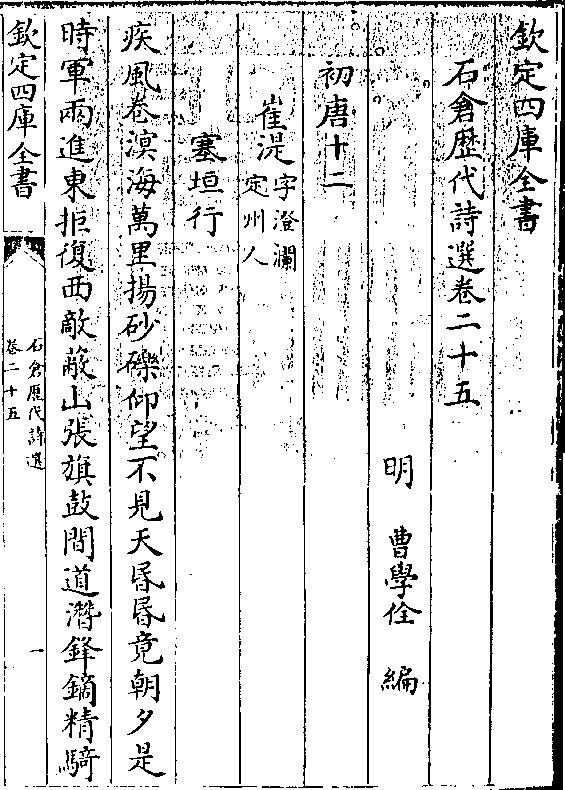 欽定四庫全書
石倉歷代詩選卷二十五
明 曹學佺 編
初唐十二
崔湜字澄瀾
定州人
塞垣行
疾風卷溟海萬里揚砂礫仰望不見天昬昬竟朝夕是
時軍兩進東拒復西敵蔽山張旗鼓間道潛鋒鏑精騎
欽定四庫全書
石倉歷代詩選
卷二十五
一